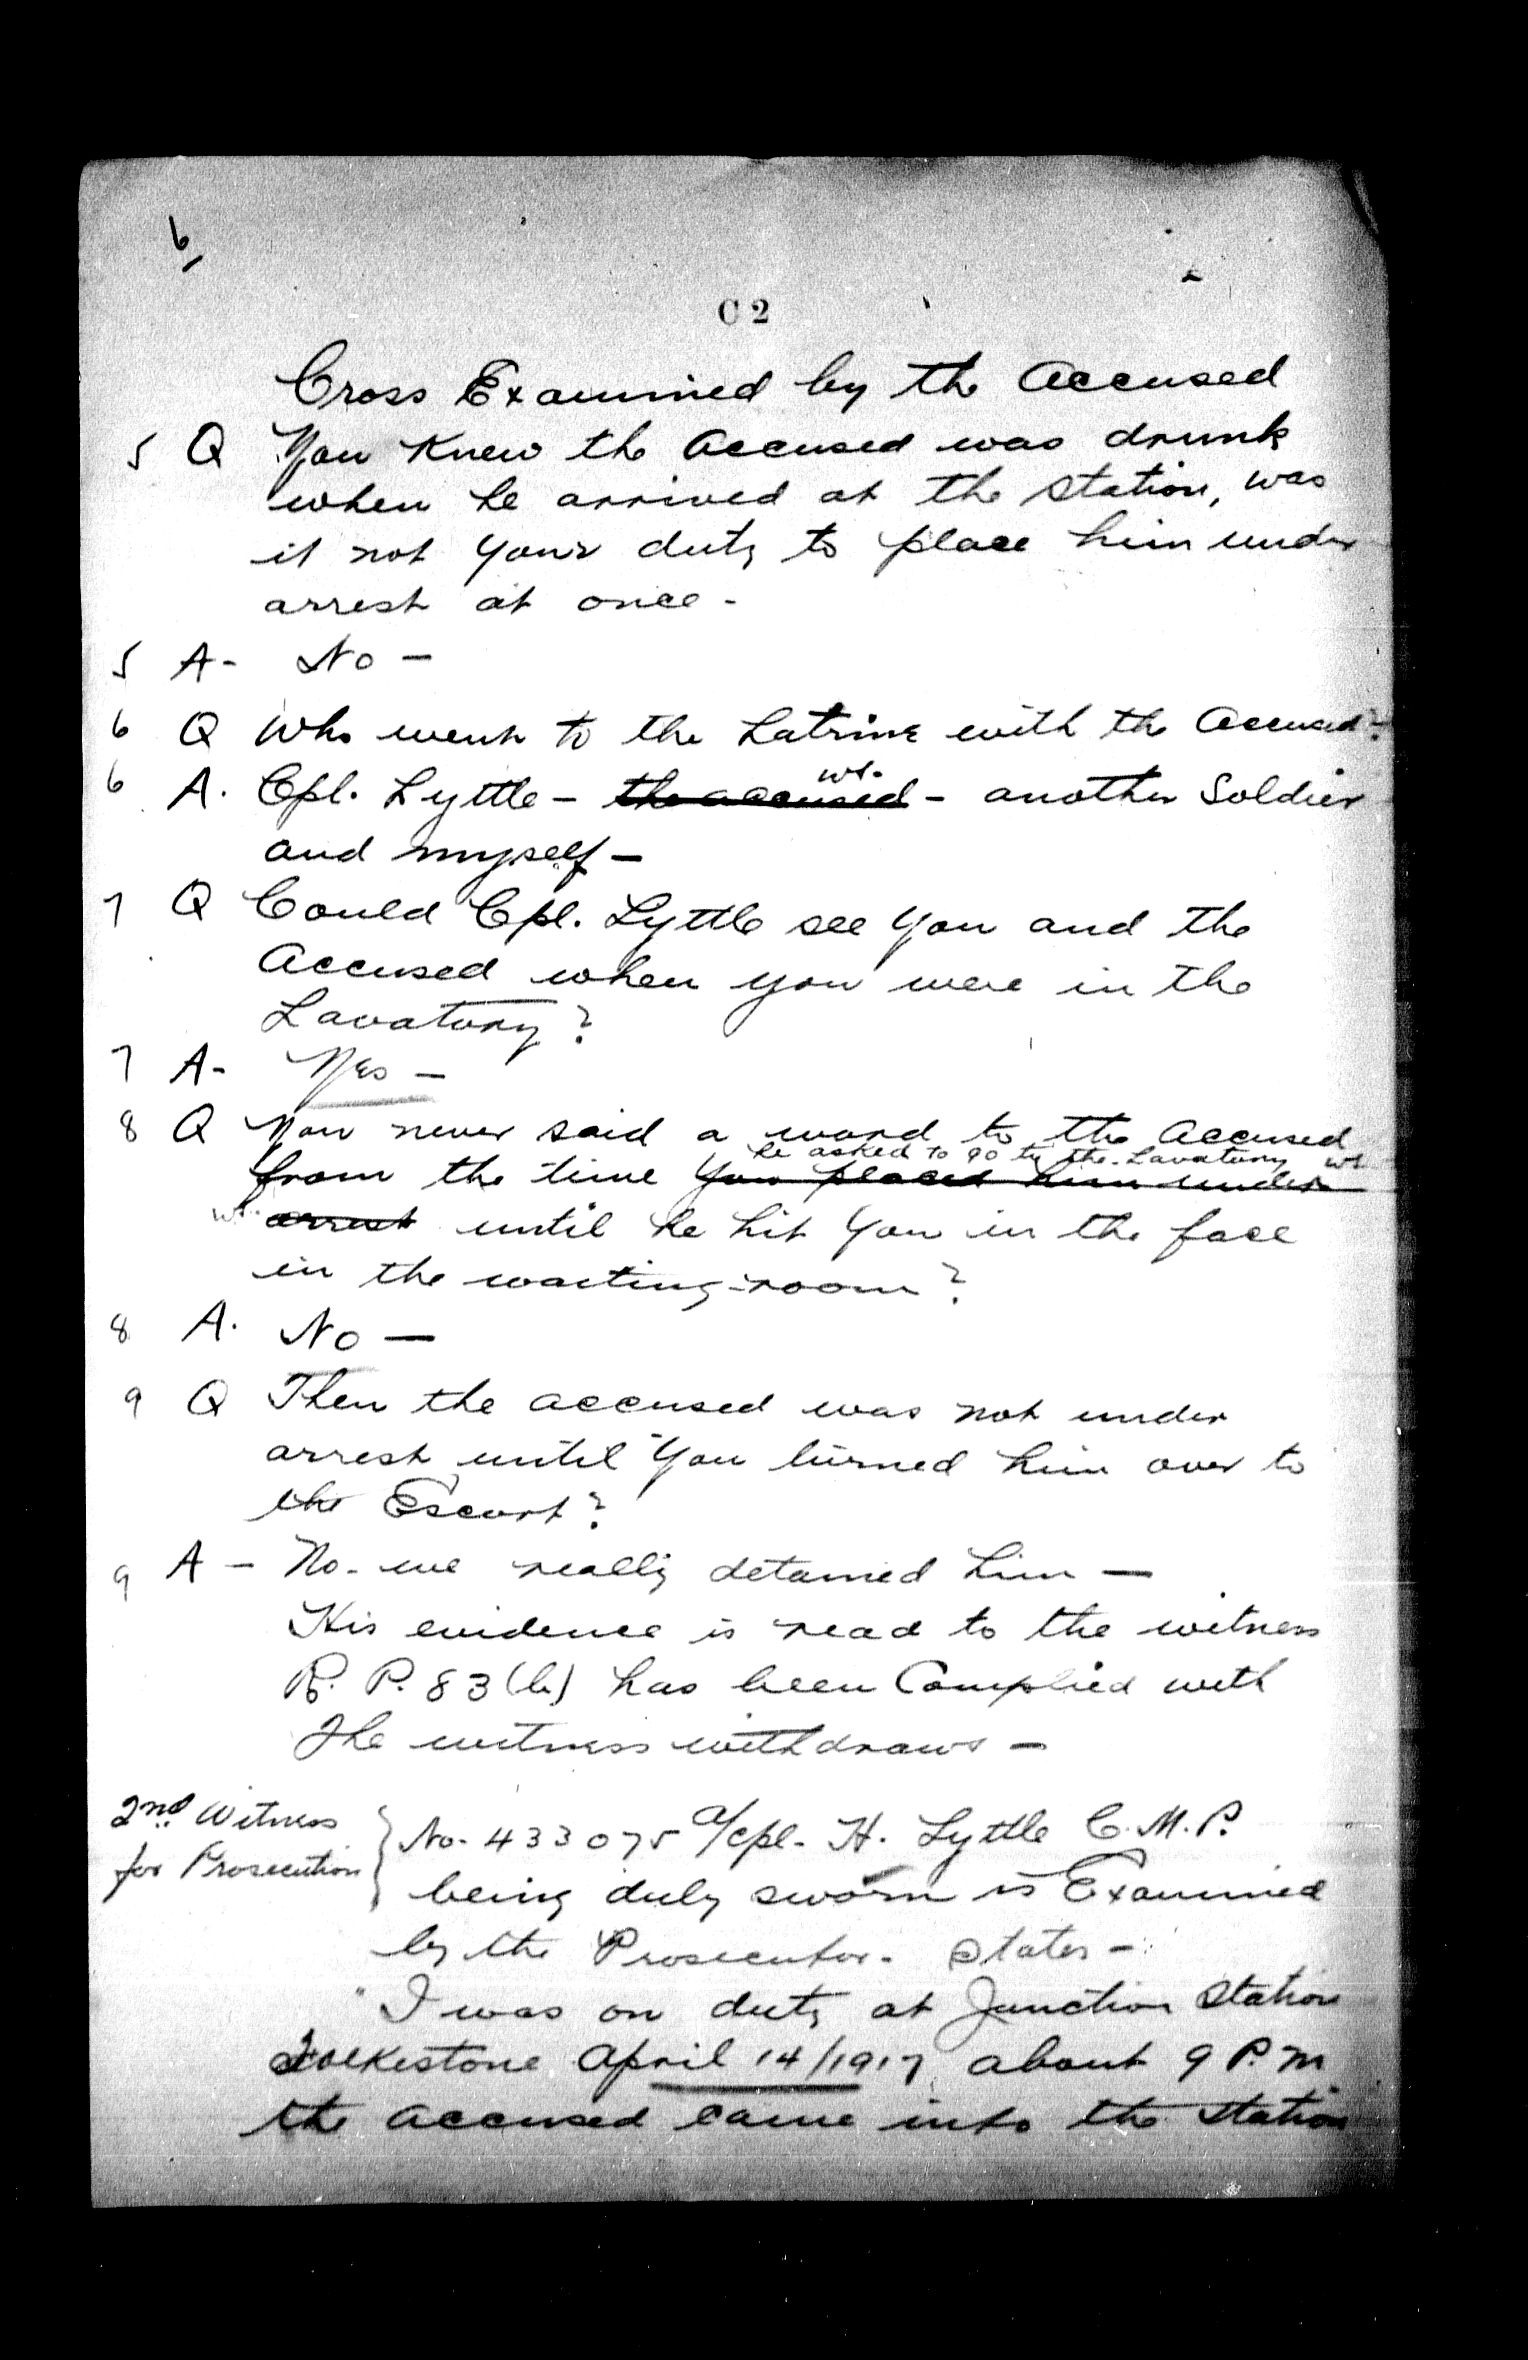 6
C 2
Cross Examined by the Accused
5 Q You Knew the Accused was drunk
when he arrived at the station, was
it not your duty to place him under
arrest at once -
5 A- No -
6 Q Who went to the Latrine with the Accused? -
6 A. Cpl. Lyttle - the accused - another Soldier
and myself -
7 Q Could Cpl. Lyttle see you and the
Accused when you were in the
Lavatory?
7 A- Yes -
8 Q You never said a word to the Accused
he asked to go to the Lavatory
from the time you placed him under
arrest until he hit you in the face
in the waiting-room?
8 A. No -
9 Q Then the accused was not under
arrest until you turned him over to
the Escort?
9 A - No - we really detained him -
His evidence is read to the witness
R. P. 83 (b) has been Complied with
The witness withdraws -
2nd Witness
for Prosecution
No. 433075 a/cpl. H. Lyttle C.M.P.
being duly sworn is Examined
by the Prosecutor - States -
"I was on duty at Junction Station
Folkestone April 14/1917 about 9 P.M
the accused came into the station